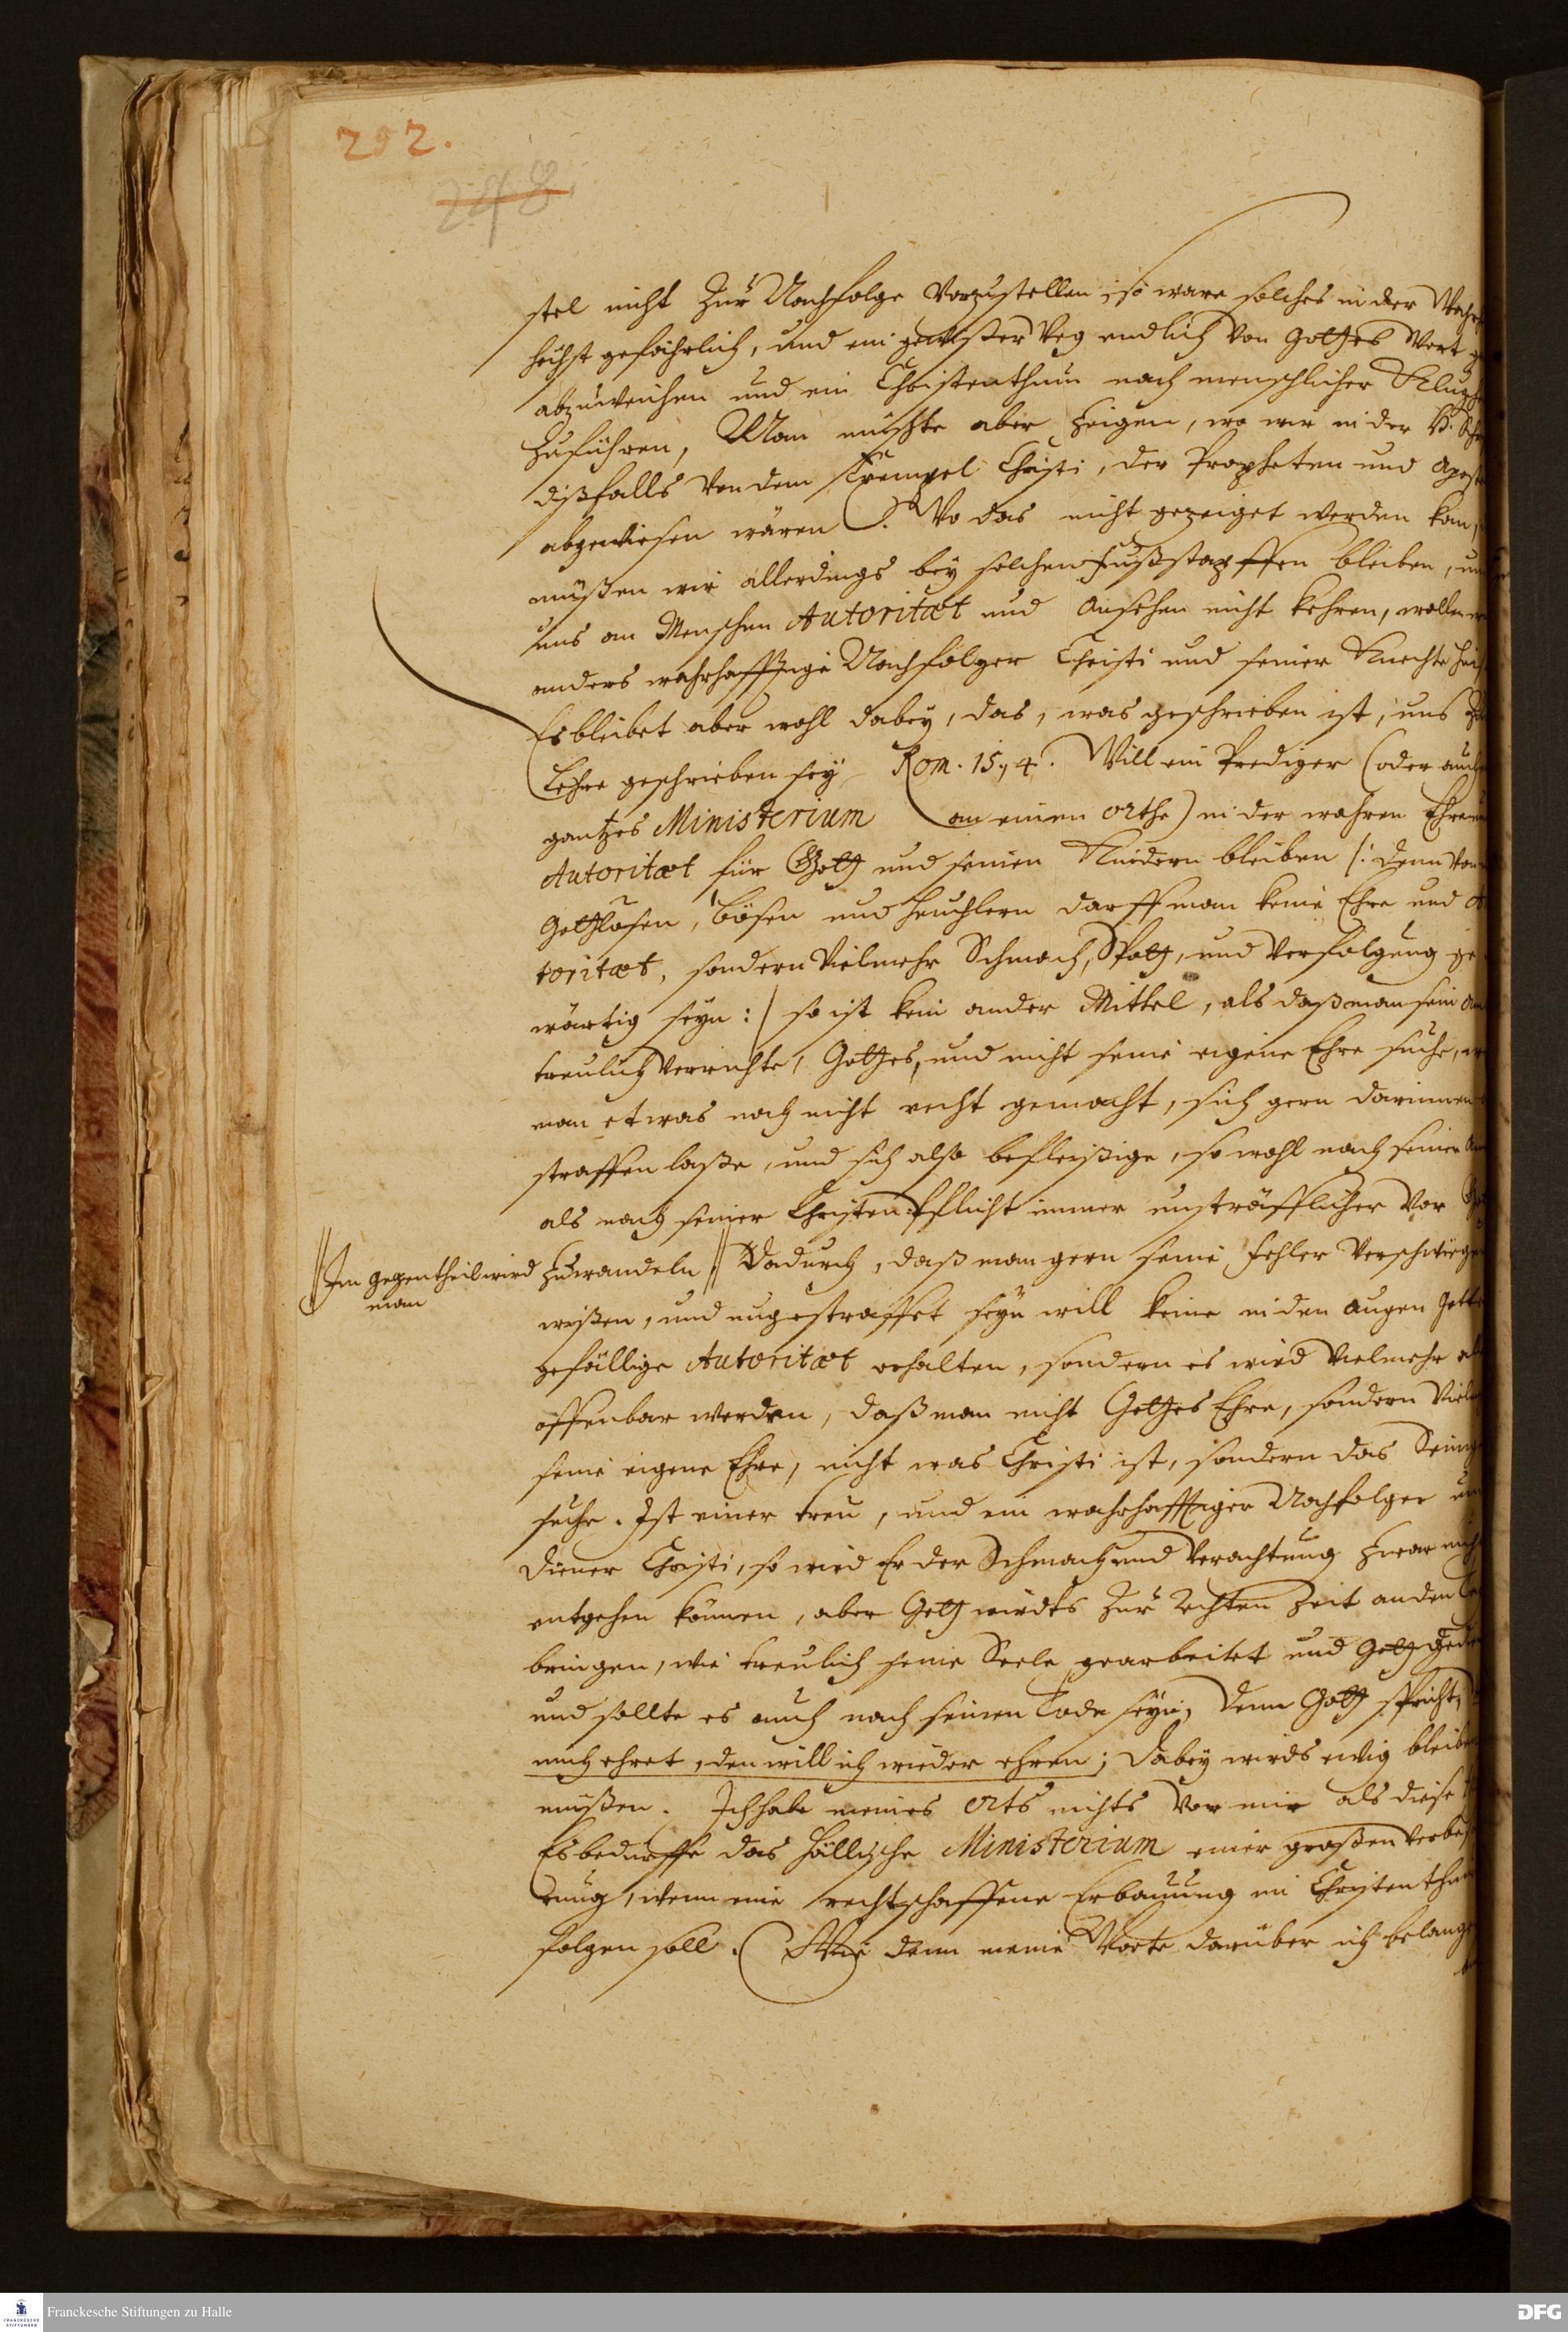 292.
248
stel nicht zur Nachfolge vorzustellen, so wäre solches in der Wahr
höchst gefährlich, und ein gewisser Weg endlich von Gottes Wort
abzuweichen und ein Christenthum nach menschlicher Klugh
zuführen, Man müste aber zeigen, wo wir in der H. Schr
dißfalls von dem Exempel Christi, der Propheten und Apost
abgewiesen wären. Wo das nicht gezeiget werden kan,
müßen wir allerdings bey solchen Fußstapffen bleiben, un
uns an Menschen Autoritæt und Ansehen nicht kehren, wollen
anders wahrhafftige Nachfolger Christi und seiner Knechte
Es bleibet aber wohl dabey, das, was geschrieben ist, uns
Lehre geschrieben sey Rom. 15, 4. Will ein Prediger (oder auch
gantzes Ministerium an einen Orthe) in der wahren Ehre
Autoritæt für Gott und seinen Kindern bleiben /: denn von
Gottlosen, bösen und Heuchlern darff man keine Ehre und A
toritæt, sondern vielmehr Schmach, Spott, und Verfolgung ge
wärtig seyn :/ so ist kein ander Mittel, als daß man sein
treulich verrichte, Gottes, und nicht seine eigene Ehre suche,
man etwas noch nicht recht gemacht, sich gern darinnen
straffen laße, und sich also befleißige, so wohl nach seiner
als nach seiner Christen-Pflicht immer unsträfflicher vor
zuwandeln || Dadurch, daß man gern seine Fehler verschwiegen
|| Im gegentheil wird
man
wißen, und ungestraffet seyn will keine in den augen Gott
gefällige Autoritæt erhalten, sondern es wird vielmehr
offenbar werden, daß man nicht Gottes Ehre, sondern viel
seine eigene Ehre, nicht was Christi ist, sondern das Seinige
suche. Ist einer treu, und ein wahrhafftiger Nachfolger un
Diener Christi, so wird Er der Schmach und Verachtung zwar nich
entgehen können, aber Gott wirdts zur rechten Zeit an den
bringen, wie treulich seine Seele gearbeitet und Gott
und sollte es auch nach seinen Tode seyn, denn Gott spricht,
mich ehret, den will ich wieder ehren; dabey wirds ewig bleiben
müßen. Ich habe meines Orts nichts vor mir als diese
Es bedürffe das Hällische Ministerium einer großen Verbeß
rung, wenn eine rechtschaffene Erbauung im Christenthum
folgen soll. Wie denn meine Worte darüber ich belange
Franckesche Stiftungen zu Halle
DFG